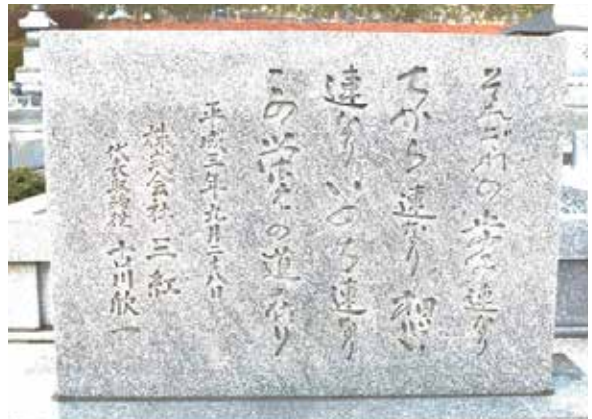 それぞれの歩み連なり
ちから連なり想い
連なりいのち連なり
この栄えの道あり
平成三年九月二十八日
株式会社 三紅
代表取締役 古川欣一